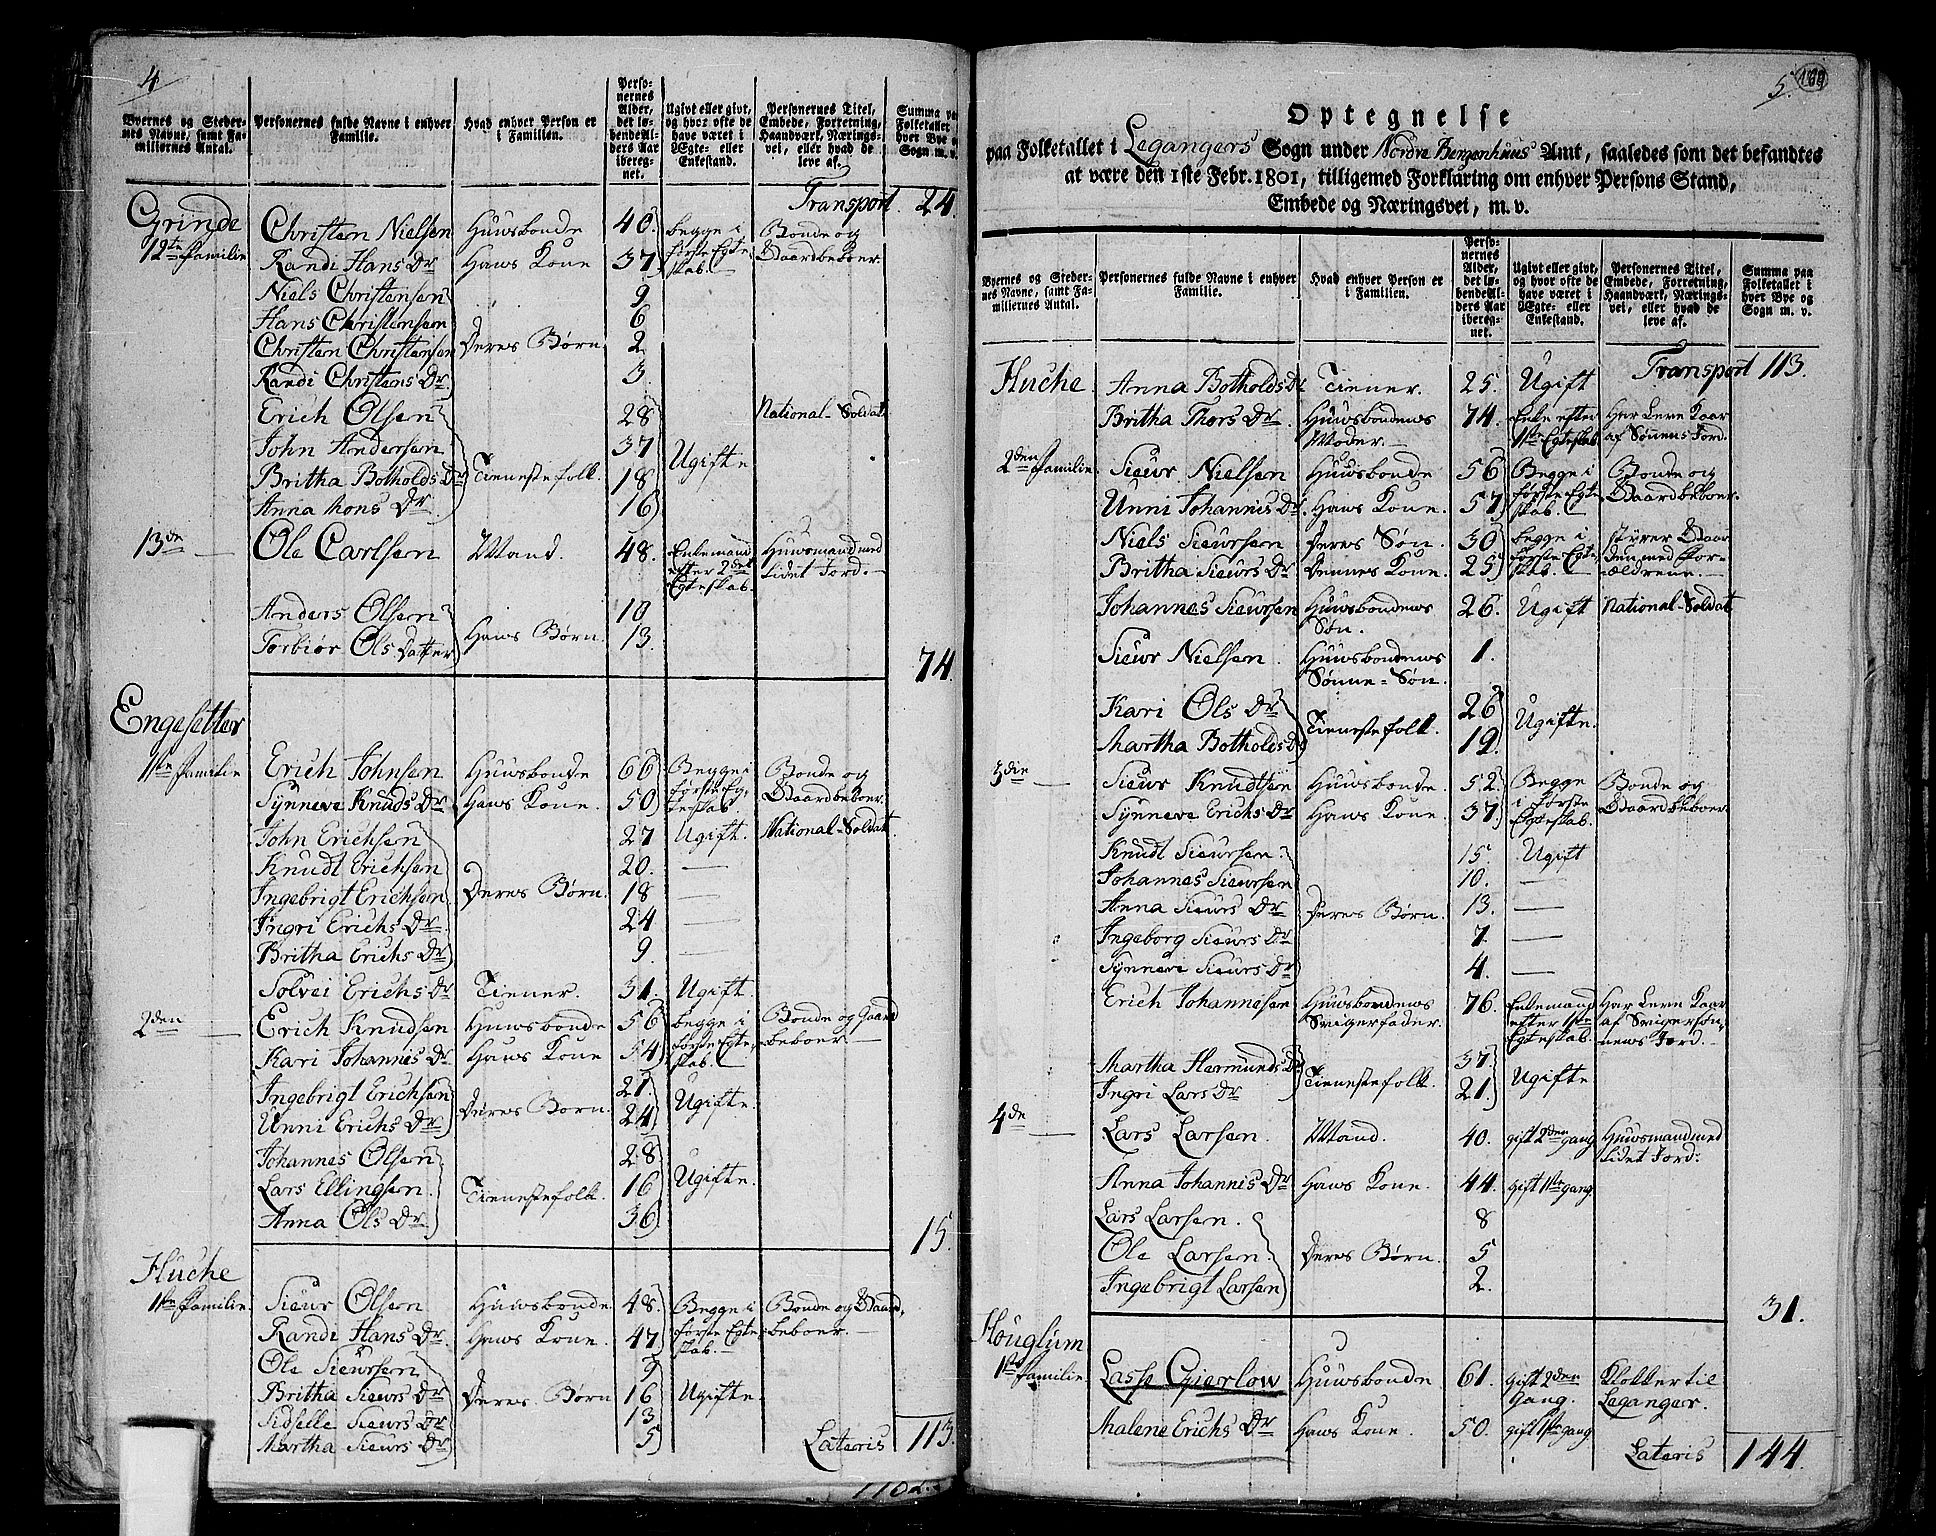 4
Byernes og Stedernes Navne, samt Familiernes Antal. | Personernes fulde Navne i enhver Familie. | Hvad enhver Person er i Familien. | Personernes Alder, det løbende Alders Aar iberegnet. | Ugivt eller givt, og hvor ofte de have været i Ægte- eller Enkestand. | Personernes Titel, Embede, Forretning, Haandværk, Næringsvei, eller hvad de leve af. | Summa paa Folketallet hver Bye og Sogn m. v.
Transport 24.
Grinde Christen Nielsen Huusbonde 40 begge i Bonde og
12te Familie Randi Hans Dr Hans Kone 37 første Egteskab. Gaardbeboer.
Niels Christensen 9
Hans Christensen 6
Christen Christensen Deres Børn 2
Randi Christens Dr 3.
Erich Olsen 28 National-Soldat
John Andersen 37 Ugifte
Britha Botholds Dr Tienestefolk. 18
Anna Mons Dr. 16
13de — Ole Carlsen Mand. 48. Enkemand Huusmand med
efter 2det lidet Jord.
Egteskab.
Anders Olsen 10
Torbiør Ols Datter Hans Børn. 13.
74.
Engesetter
1ste Familie Erich Johnsen Huusbonde 66 Begge i Bonde og
Synneve Knuds Dr Hans Kone. 50 første Egteskab Gaardbeboer.
John Erichsen 27 Ugift. National-Soldat.
Knudt Erichsen 20. —
Ingebrigt Erichsen Deres Børn. 18 —
Ingri Erichs Dr 24 —
Britha Erichs Dr 9. —
Solvei Erichs Dr Tiener. 31. Ugift.
2den — Erich Knudsen Huusbonde 56 begge i Bonde og Gaard
Kari Johannis Dr Hans Kone 54 første Egteskab. beboer.
Ingebrigt Erichsen 21.
Unni Erichs Dr Deres Børn. 24 Ugifte.
Johannes Olsen 28
Lars Ellingsen. Tienestefolk. 16 Ugifte.
Anna Ols Dr 36
15.
Huche
1ste Familie Sieur Olsen Huusbonde 48. Begge i Bonde og Gaard
Randi Hans Dr. Hans Kone. 47 første Egteskab. beboer.
Ole Sieursen 9
Britha Sieurs Dr Deres Børn 16 Ugifte.
Sidselle Sieurs Dr 13
Martha Sieurs Dr 5
Lateris 113.
5.
Optegnelse
paa Folketallet i Legangers Sogn under Nordre Bergenhuus Amt, saaledes som det befandtes
at være den 1ste Febr. 1801, tilligemed Forklaring om enhver Persons Stand,
Embede og Næringsvei, m. v.
Byernes og Stedernes Navne, samt Familiernes Antal. | Personernes fulde Navne i enhver Familie. | Hvad enhver Person er i Familien. | Personernes Alder, det løbende Alders Aar iberegnet. | Ugivt eller givt, og hvor ofte de have været i Ægte- eller Enkestand. | Personernes Titel, Embede, Forretning, Haandværk, Næringsvei, eller hvad de leve af. | Summa paa Folketallet i hver Bye og Sogn m. v.
Transport 113.
Huche. Anna Botholds Dr Tiener. 25. Ugift
Britha Thors Dr. Huusbondens 74. Enke efter Har Leve Kaar
Moder. 1ste Egteskab af Sønnens Jord.
2den Familie. Sieur Nielsen Huusbonde 56 Begge i Bonde og
Unni Johannis Dr. Hans Kone. 57 første Egteskab. Gaardbeboer.
Niels Sieursen Deres Søn. 30 begge i styrer Gaar
Britha Sieurs Dr Dennes Kone. 25 første Egteskab. den med Forældrene.
Johannes Sieursen Huusbondens 26. Ugift National-Soldat
Søn.
Sieur Nielsen. Huusbondens 1.
Sønne-Søn.
Kari Ols Dr 26
Martha Botholds Dr Tienestefolk. 19. Ugifte.
3die — Sieur Knudtsen Huusbonde. 52. Begge Bonde og
Synneve Erichs Dr Hans Kone. 37 i første Gaardbeboer.
Egteskab.
Knudt Sieursen. 15. Ugift
Johannes Sieursen 10. —
Anna Sieurs Dr Deres Børn. 13. —
Ingeborg Sieurs Dr 7 —
Synneve Sieurs Dr 4. —
Erich Johannesen Huusbondens 76. Enkemand Har Leve Kaar
Svigerfader. efter 1ste af Svigersøn
Egteskab. nens Jord.
Martha Hermunds Dr 37.
Ingri Lars Dr Tienestefolk. 21. Ugifte
4de — Lars Larsen. Mand. 40. gift 2den gang Huusmand med
lidet Jord.
Anna Johannis Dr Hans Kone. 44. gift 1ste gang
Lars Larsen. 8
Ole Larsen. Deres Børn. 5
Ingebrigt Larsen 2.
31.
Houglum
1ste Familie Lasse Gierlow Huusbonde 61. gift 2den Klokker til
gang. Leganger.
Malene Erichs Dr Hans Kone. 50. gift 1ste gang
Lateris 144.